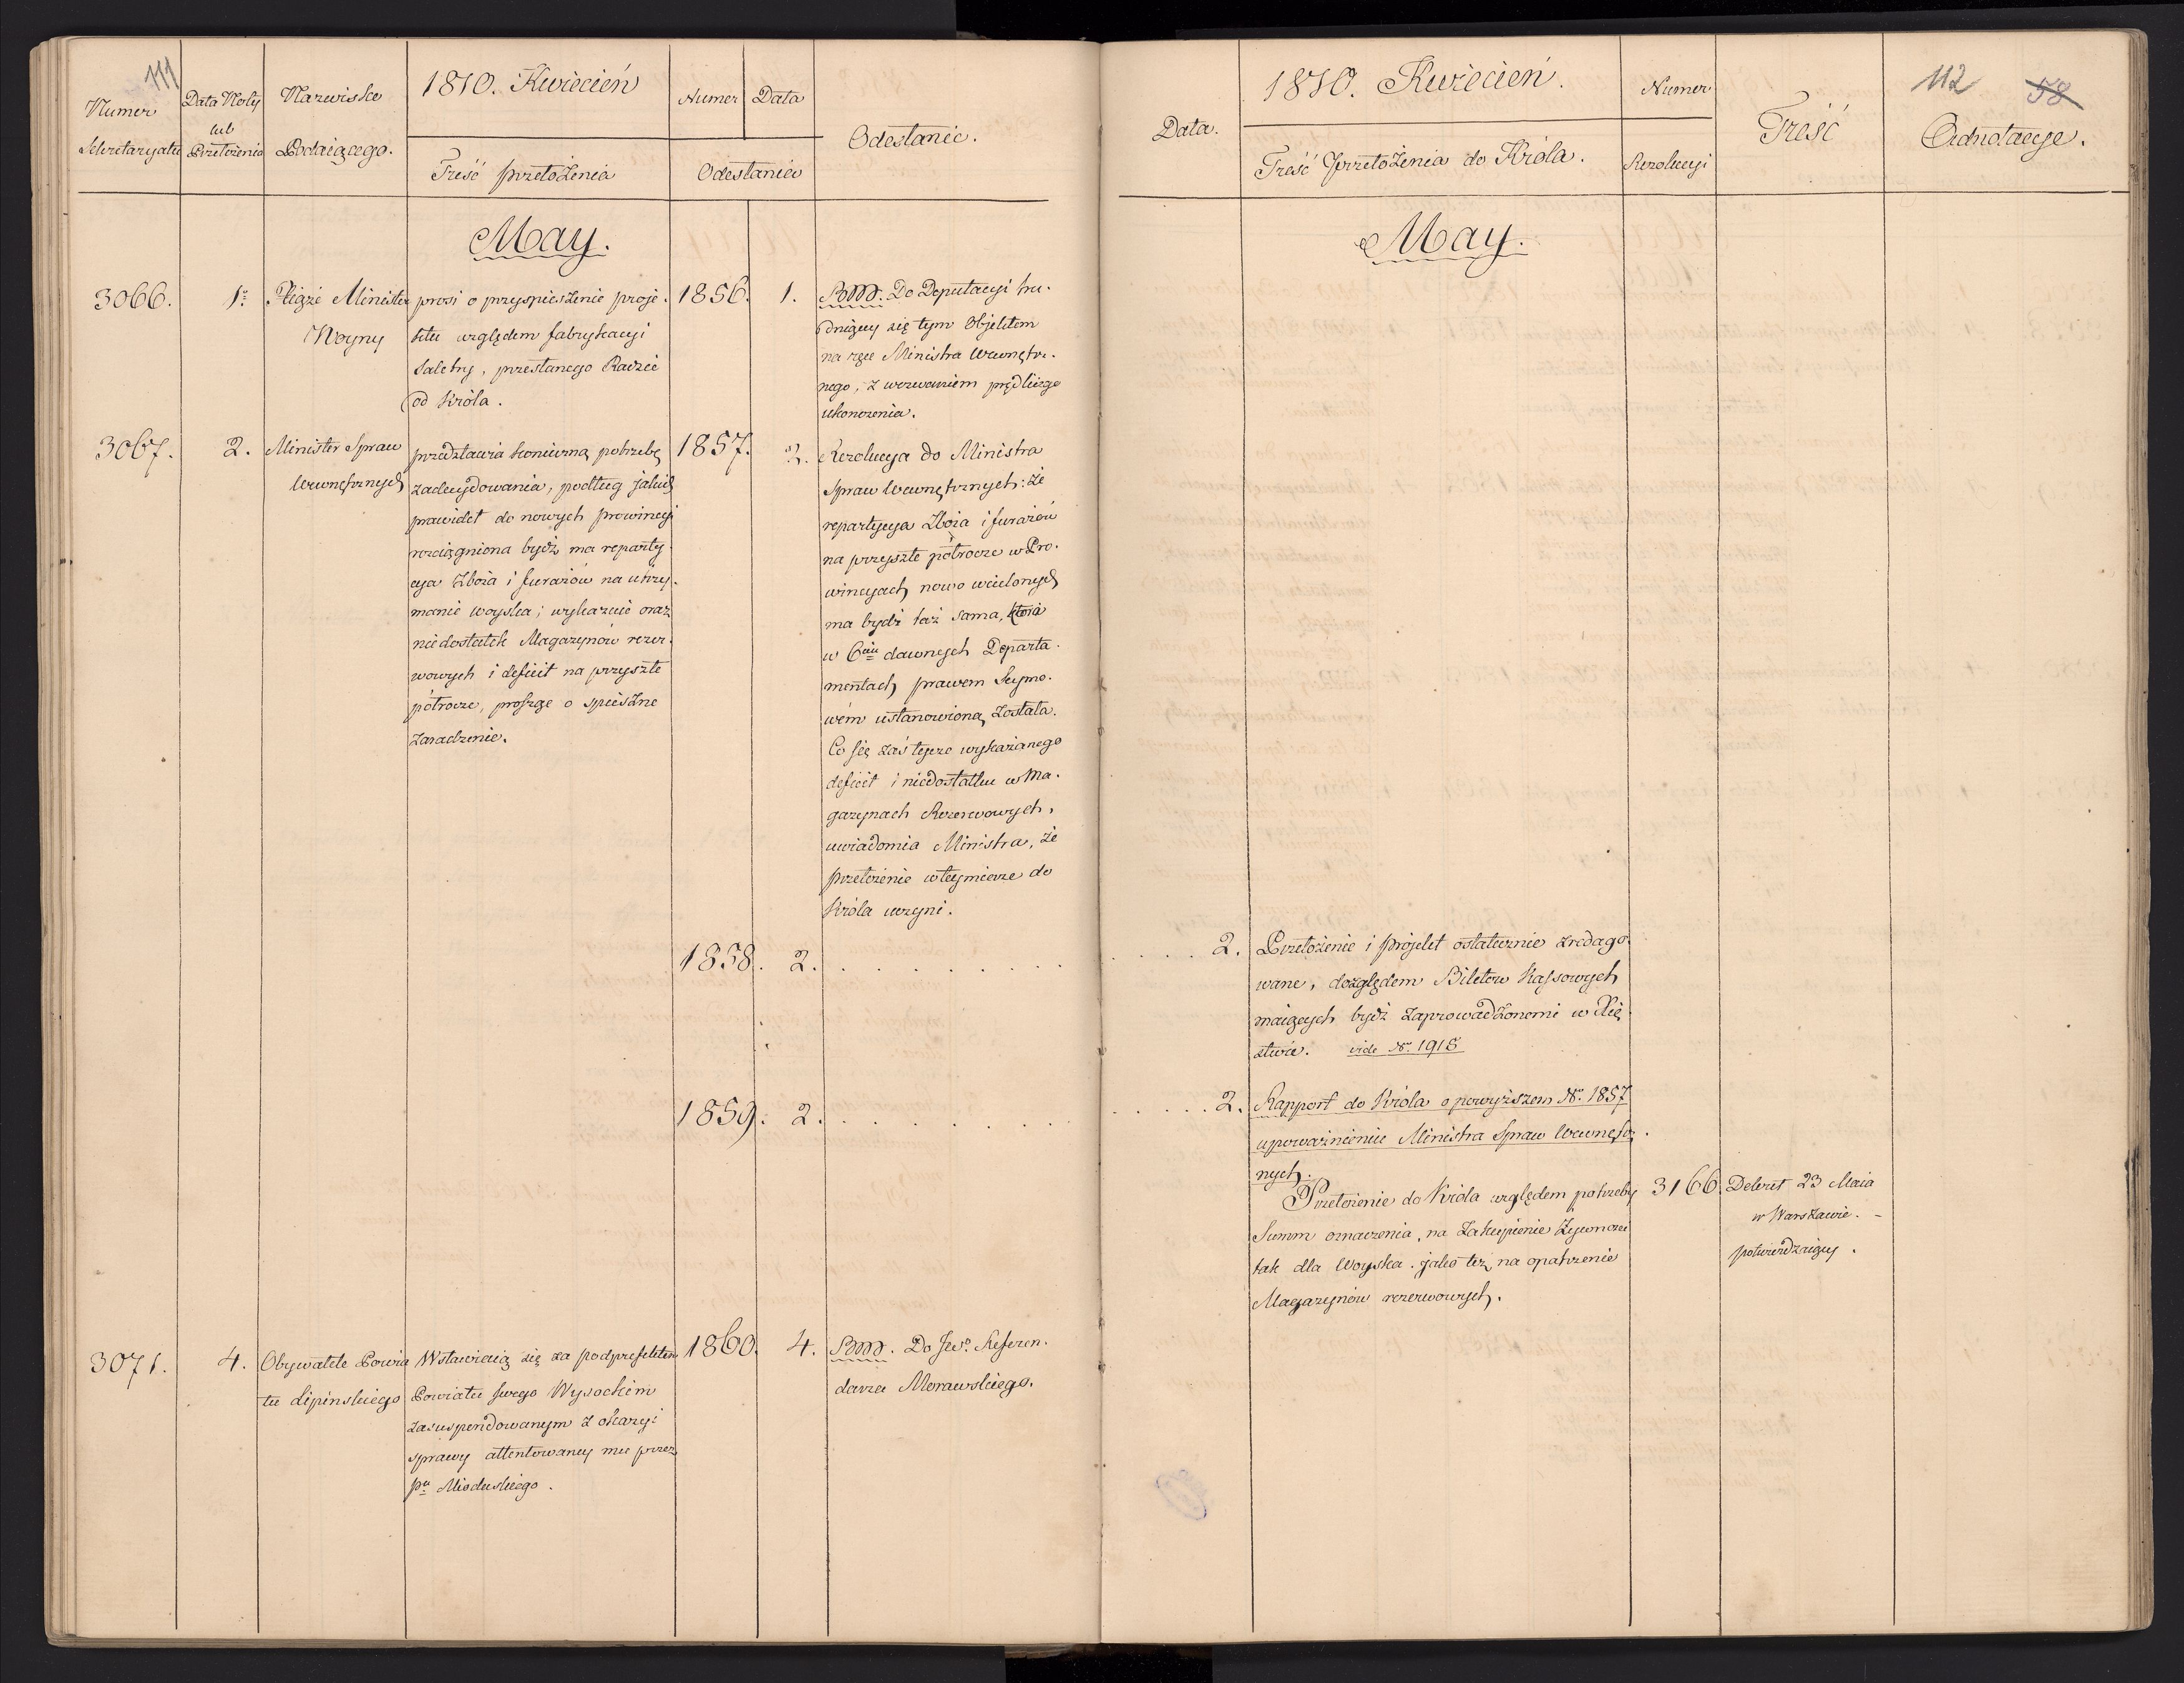 111
Numer
Sekretaryatu
Data Noty
lub
Przełożenia
Nazwisko
Podaiącego.
1810. Kwiecień
Treść przełożenia
Numer
Data
Odesłania
Odesłanie.
May.
3066.
1º
Xiąże Minister
Woyny
prosi o przyspieszenie proje-
ktu względem fabrykacyi
Saletry, przesłanego Radzie
od Króla.
1856.
1.
Bmm. Do Deputacyi tru-
dniącey się tym Objektem
na ręce Ministra Wewnętrz-
nego, z wezwaniem prędkiego
ukończenia.
3067.
2.
Minister Spraw
Wewnętrznych
przedstawia konieczną potrzebę
zadecydowania, podług jakich
prawideł do nowych prowincyi
rozciągniona bydź ma reparty-
cya Zboża i furażów na utrzy-
manie woyska; wykazuie oraz
niedostatek Magazynów rezer-
wowych i deficit na przyszłe
półrocze, prosząc o spieszne
Zaradzenie.
1857.
2.
Rezolucya do Ministra
Spraw Wewnętrznych: że
repartycya Zboża i furażów
na przyszłe półrocze w Pro-
wincyach nowo wcielonych
ma bydź taż sama, która
w 6ciu dawnych Departa-
mentach prawem Seymo-
wém ustanowioną została.
Co się zaś tycze wykazanego
deficit i niedostatku w Ma-
gazynach Rezerwowych,
uwiadomia Ministra, że
przełożenie w tey mierze do
Króla uczyni.
1858.
2.
1859.
2.
3071.
4.
Obywatele Powia
tu Lipinskiego
Wstawiaią się za podprefektem
Powiatu swego Wysockim
zasuspendowanym z okazyi
sprawy attentowaney mu przez
Pa Mioduskiego.
1860.
4.
Bmm. Do JWo Referen-
darza Morawskiego.
Data.
1810. Kwiecień.
Treść Przełożenia do Króla.
Numer
Rezolucyi
Treść
112
58
Adnotacye.
May.
2.
Przełożenie i projekt ostatecznie zredago-
wane, względem Biletów Kassowych
maiących bydź zaprowadzonemi w Xię-
stwie. vide No. 1918
2.
Rapport do Króla o powyższem No. 1857
upoważnieniu Ministra Spraw Wewnętrz-
nych.
Przełożenie do Króla względem potrzeby
Summ oznaczenia, na Zakupienie Żywności
tak dla Woyska, jako też na opatrzenie
Magazynów rezerwowych.
3166.
Dekret 23 Maia
w Warszawie. -
potwierdzaiący.